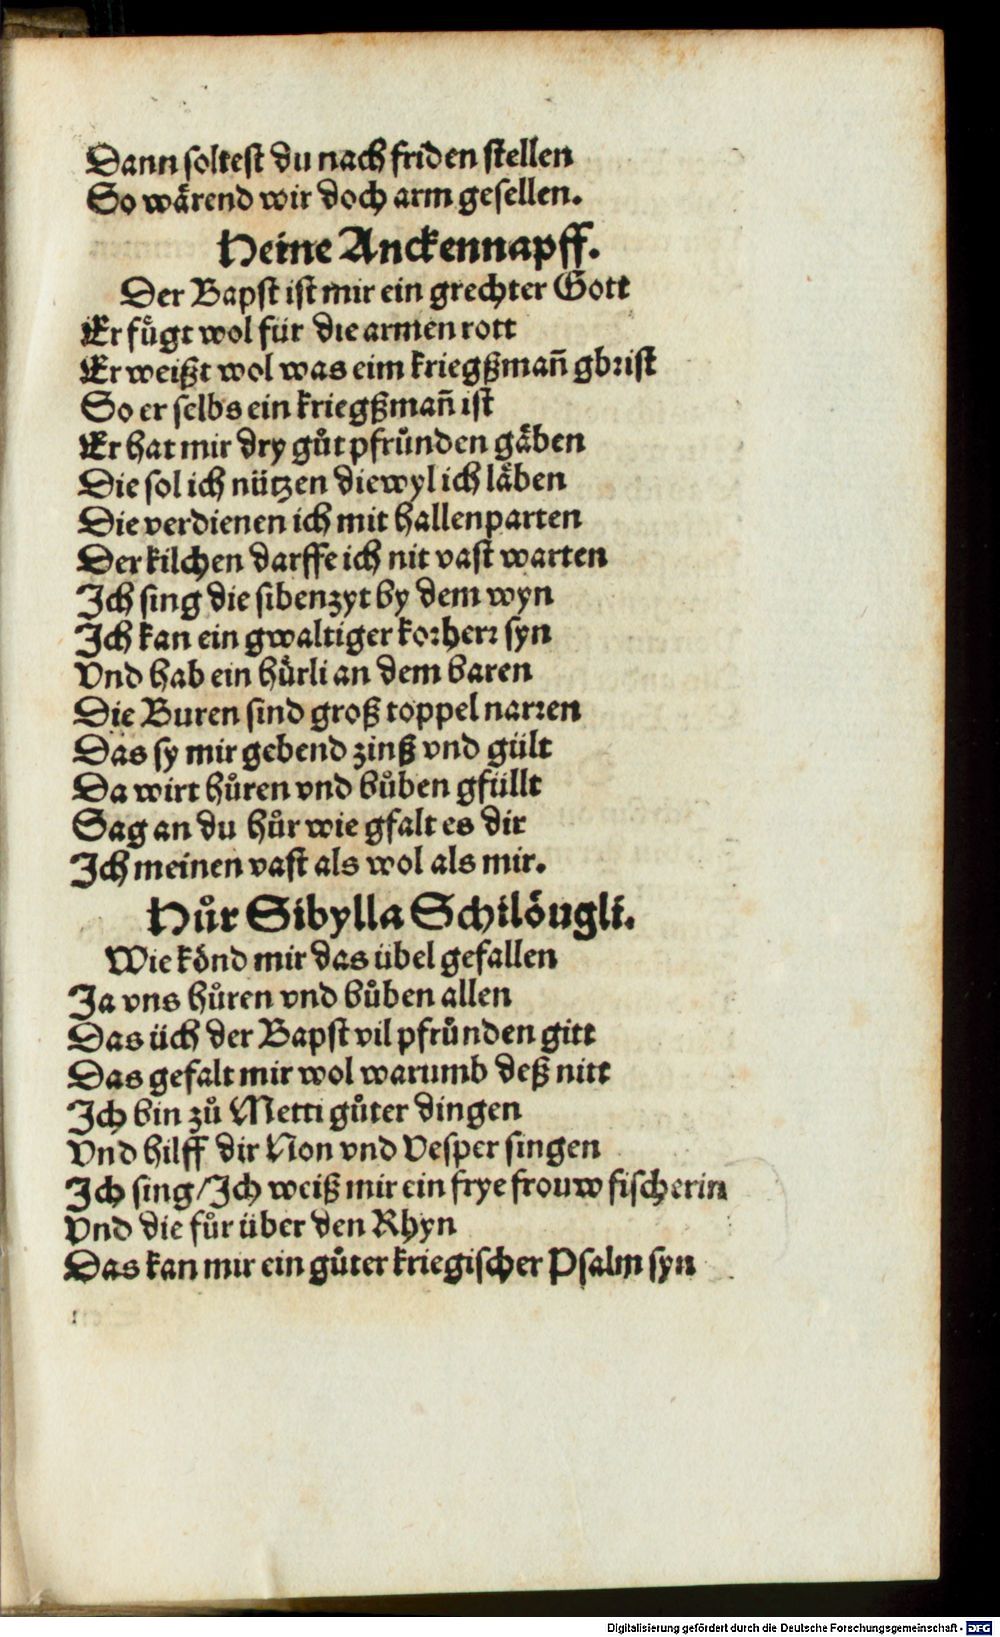 Dann soltest du nach friden stellen
So wärend wir doch arm gesellen.
Heine Anckennapff.
Der Bapst ist mir ein grechter Gott
Er fůgt wol für die armen rott
Er weißt wol was eim kriegßmañ gbrist
So er selbs ein kriegßmañ ist
Er hat mir dry gůt pfrůnden gäben
Die sol ich nützen diewyl ich läben
Die verdienen ich mit hallenparten
Der kilchen darffe ich nit vast warten
Ich sing die sibenzyt by dem wyn
Ich kan ein gwaltiger korherr syn
Vnd hab ein hůrli an dem baren
Die Buren sind groß toppel narren
Das sy mir gebend zinß vnd gült
Da wirt hůren vnd bůben gfüllt
Sag an du hůr wie gfalt es dir
Ich meinen vast als wol als mir.
Hůr Sibylla Schilöugli.
Wie könd mir das übel gefallen
Ja vns hůren vnd bůben allen
Das üch der Bapst vil pfrůnden gitt
Das gefalt mir wol warumb deß nitt
Ich bin zů Metti gůter dingen
Vnd hilff dir Non vnd Vesper singen
Ich sing/Ich weiß mir ein frye frouw fischerin
Vnd die fůr über den Rhyn
Das kan mir ein gůter kriegischer Psalm syn
Digitalisierung gefördert durch die Deutsche Forschungsgemeinschaft - DFG